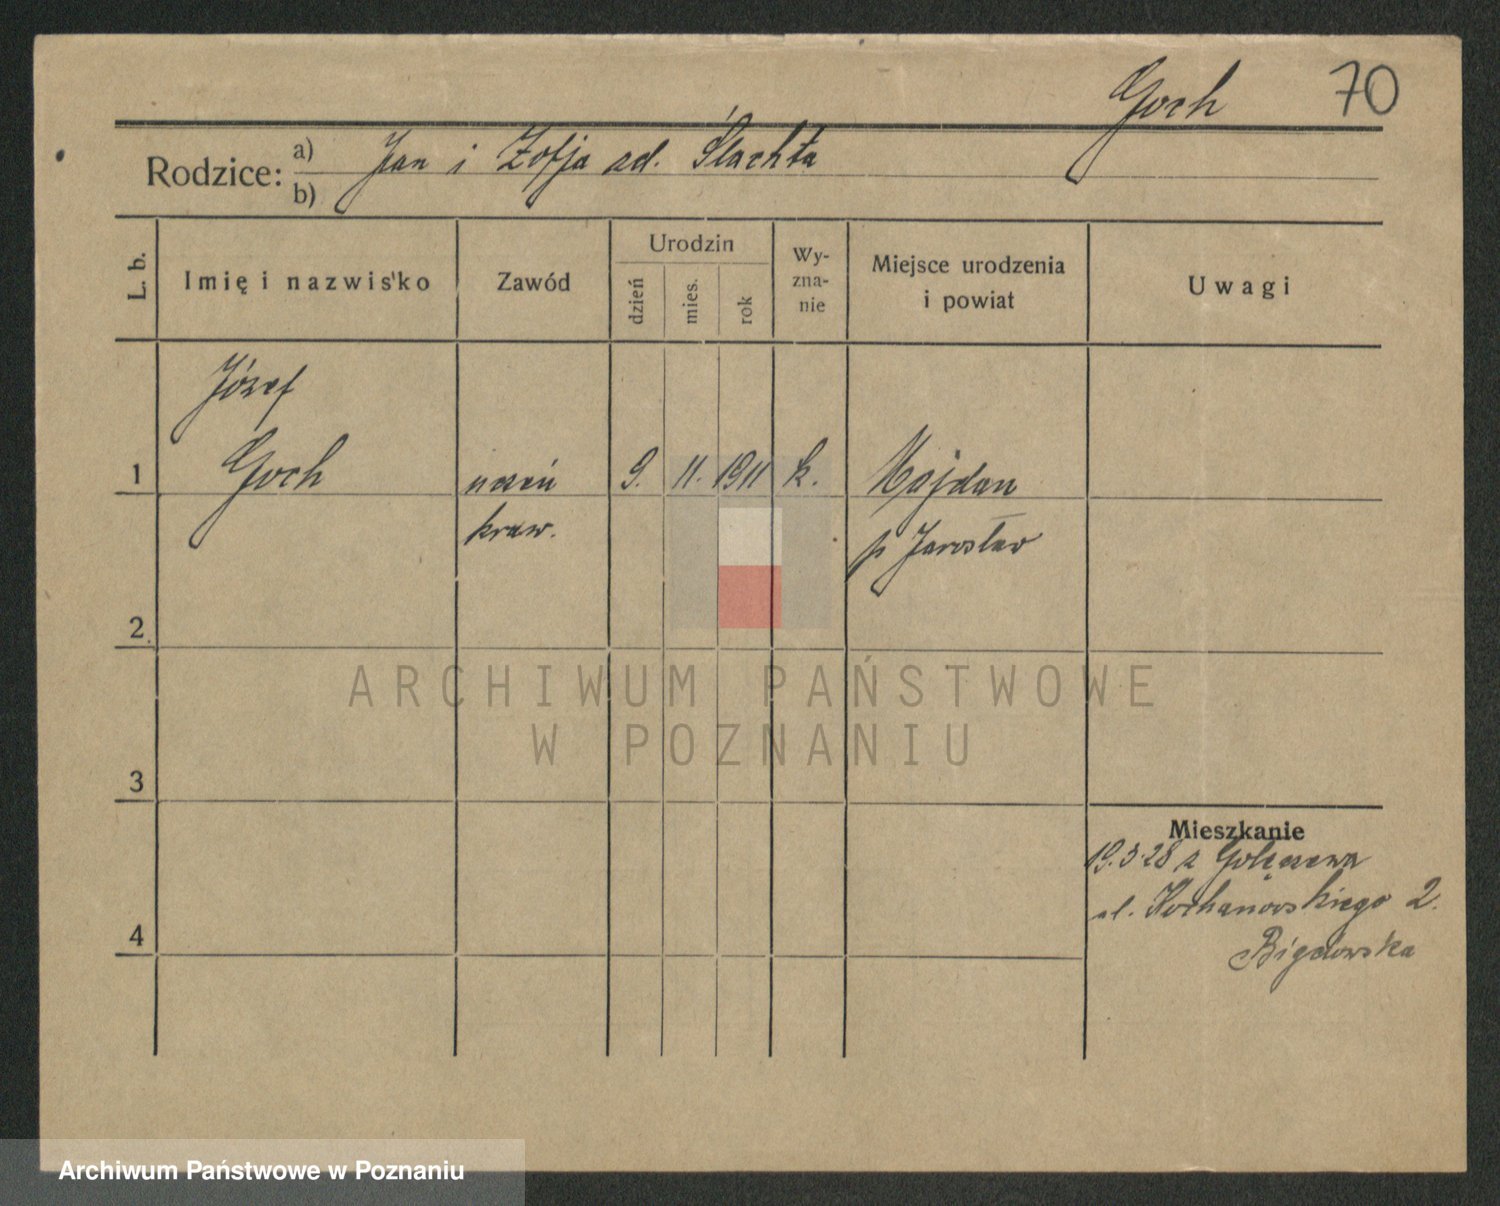 Goch 70
Rodzice: a) Jan i Zofja zd. Ślachta
b)
L. b. Imię i nazwisko Zawód Urodzin dzień mies. rok Wyznanie Miejsce urodzenia i powiat Uwagi
Józef
1 Goch uczeń 9. 11. 1911 k. Majdan
kraw. p Jarosław
2
ARCHIWUM PAŃSTWOWE
W POZNANIU
3
Mieszkanie
19.3.28 z Golęczewa
ul. Kochanowskiego 2.
4
Archiwum Państwowe w Poznaniu